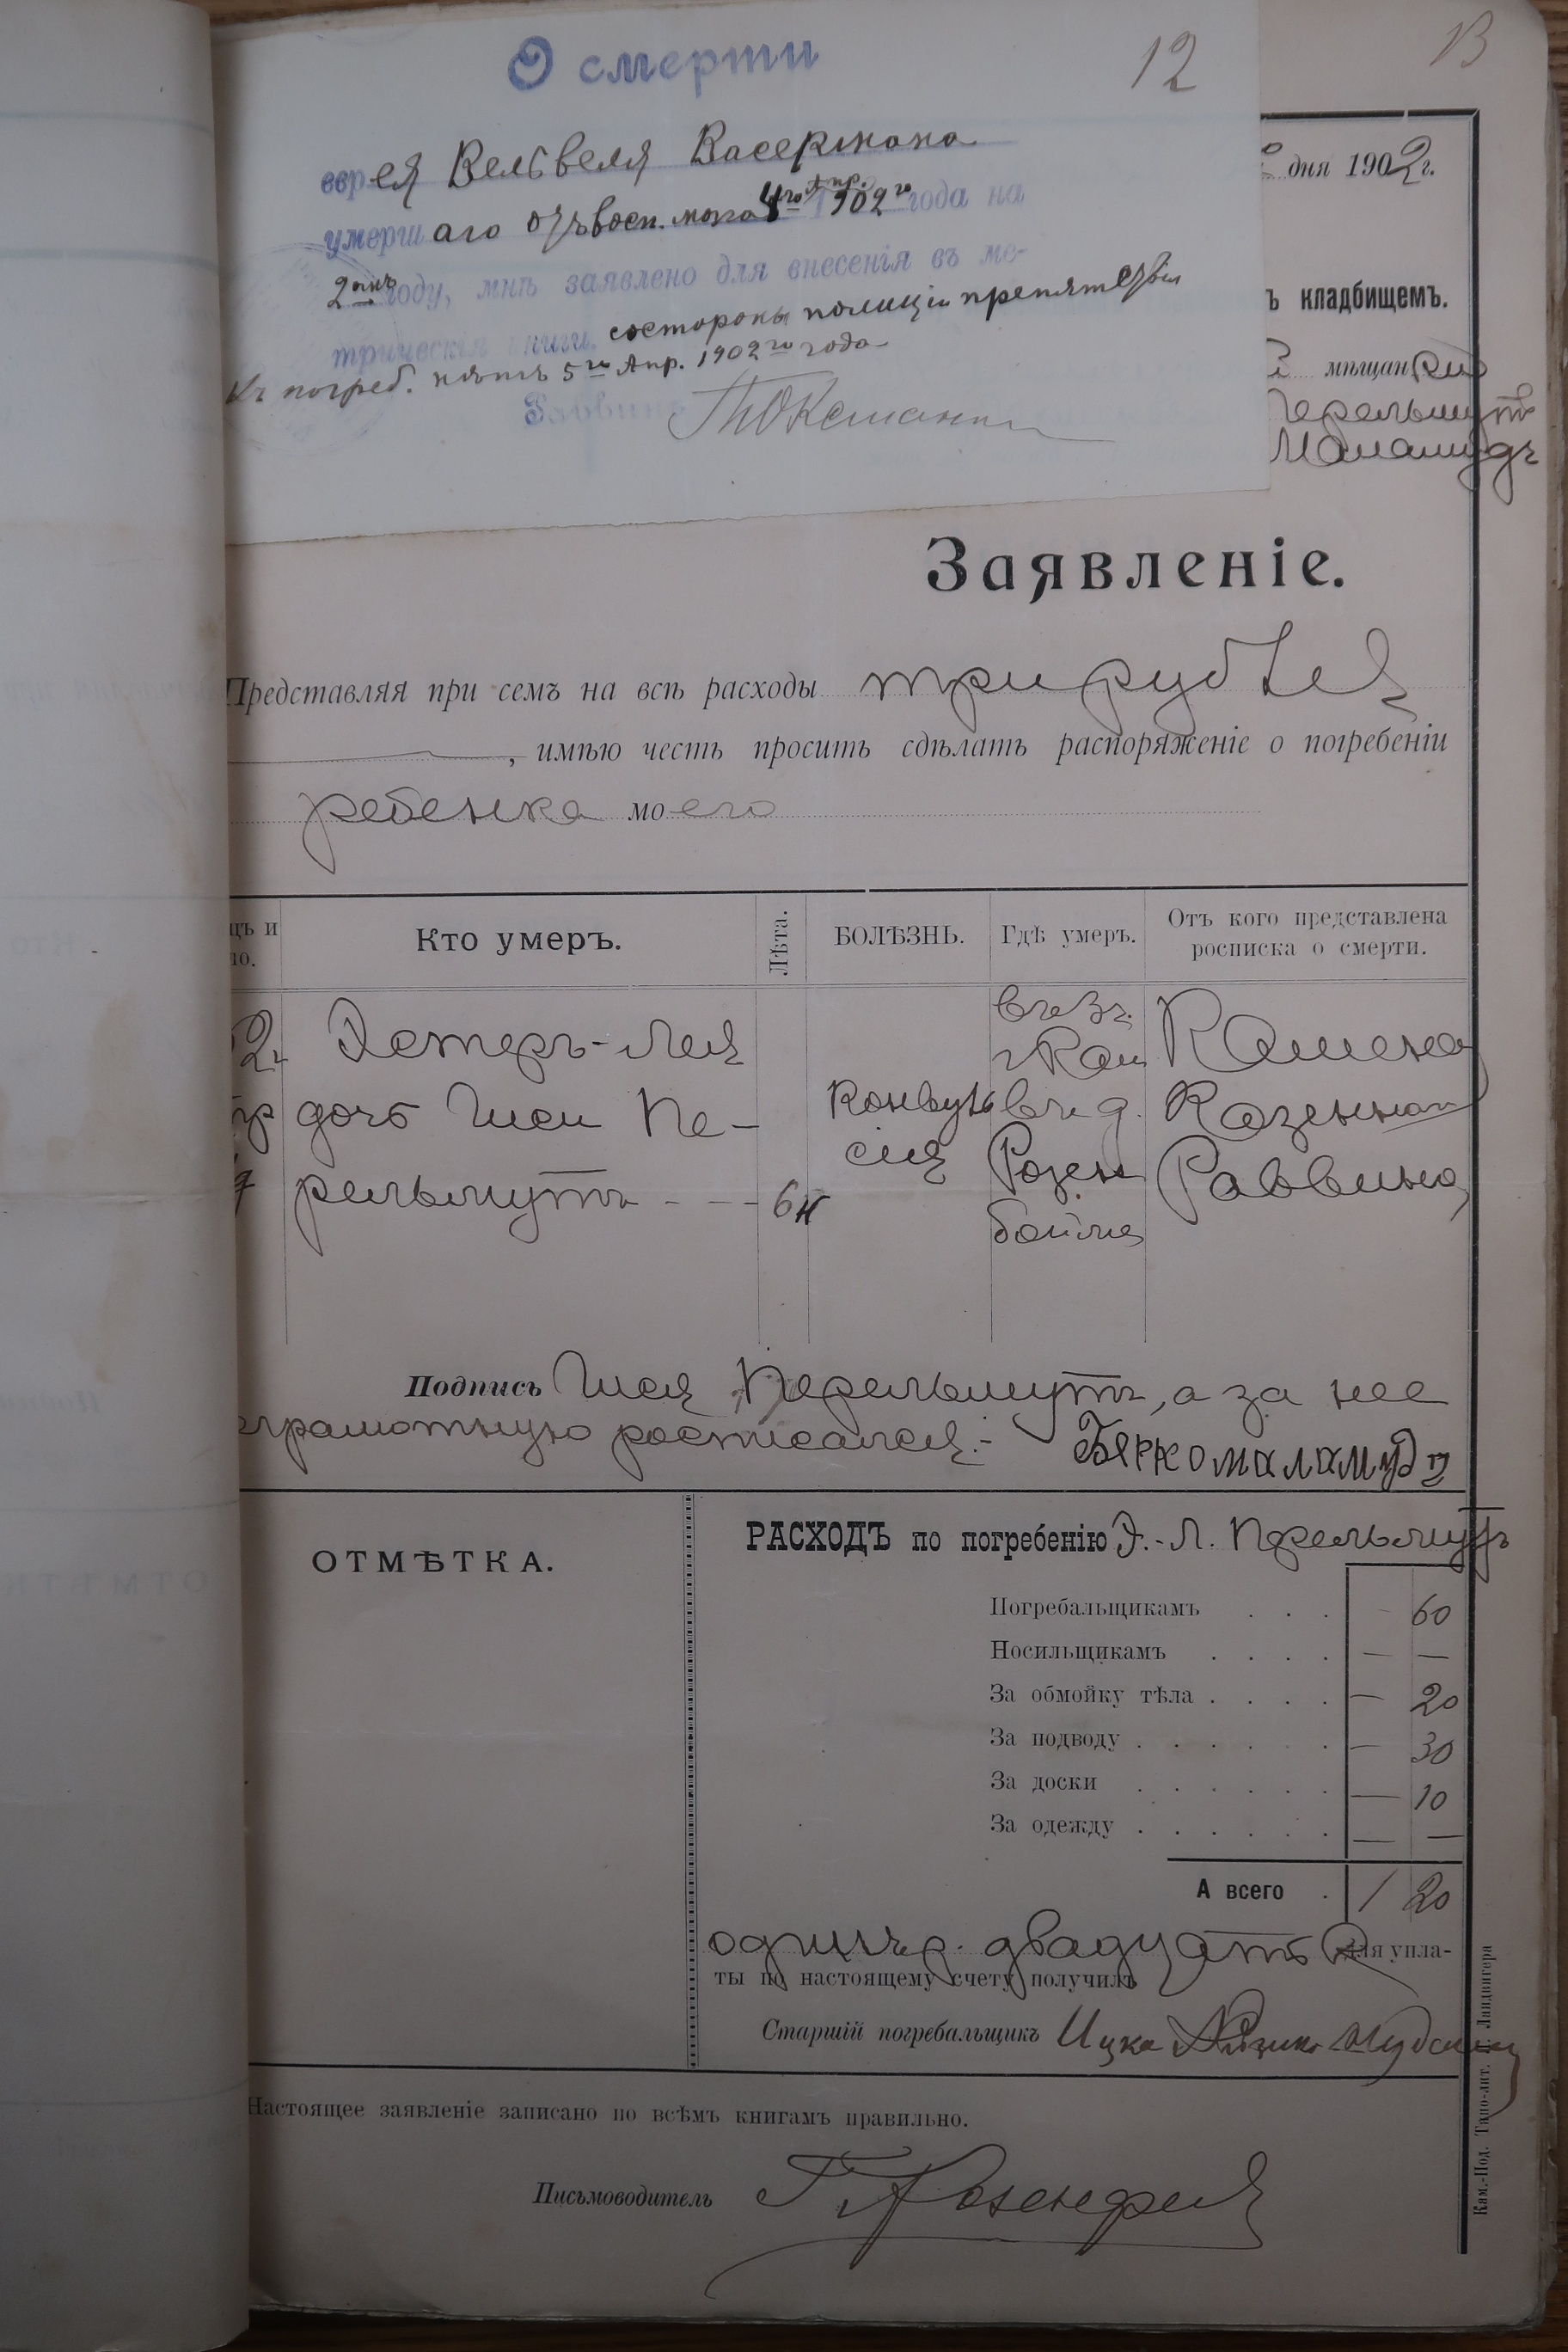 О смерти
12
13
еврея Вельвеля Васермана
умершаго отъ восп. мозга 4го Апр. 1902 го года на
2омъ году, мнѣ заявлено для внесенія въ ме-
трическія книги. состороны полиціи препятствія
Къ погреб. нѣтъ 5го Апр. 1902го года
Раввинъ
дня 1902 г.
ъ кладбищемъ.
мѣщанки
Перельмутъ
Маламудъ
Заявленіе.
Представляя при семъ на всѣ расходы три рубля
, имѣю честь просить сдѣлать распоряженіе о погребеніи
ребенка моего
цъ и
ло.
Кто умеръ.
Лѣта.
БОЛѢЗНЬ.
Гдѣ умеръ.
Отъ кого представлена
росписка о смерти.
Эстеръ-Лея
дочь Шеи Пе-
рельмутъ
6 н
Конвуль
сія
г Кам
въ д.
Розен
бойма
Камена
Казеннаго
Раввина
Подпись Шея Перельмутъ, а за нее
грамотную росписался.-
Берко маламудъ
ОТМѢТКА.
РАСХОДЪ по погребенію Э.-Л. Перельмутъ
Погребальщикамъ . . . - 60
Носильщикамъ . . . . — —
За обмойку тѣла . . . . — 20
За подводу . . . . . . — 30
За доски . . . . . — 10
За одежду . . . . . . — —
А всего . 1 20
одинъ р. двадцать К для упла-
ты по настоящему счету получилъ
Старшій погребальщикъ Ицко
Настоящее заявленіе записано по всѣмъ книгамъ правильно.
Письмоводитель
Кам.-Под. Типо-лит. Ландвигера